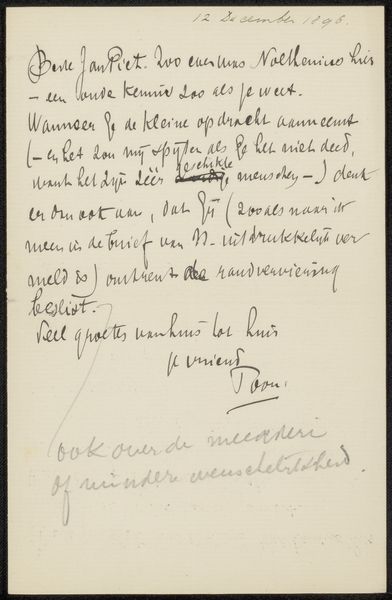 12 December 1896.
Beste Jan Piet. Zoo even was Nolthenius hier
– een oude kennis zoo als je weet.
Wanneer ge de kleine opdracht aanneemt
(– en het zou mij spijten als ge het niet deed,
want het zijn zéér geschikte menschen –) denk
er dan ook aan, dat gij (zooals naar ik
meen in de brief van N– uitdrukkelijk ver
meld is) omtrent de randversiering
beslist.
Veel groeten van huis tot huis
je vriend
Toon.
ook over de meerdere
of mindere wenschelijkheid.